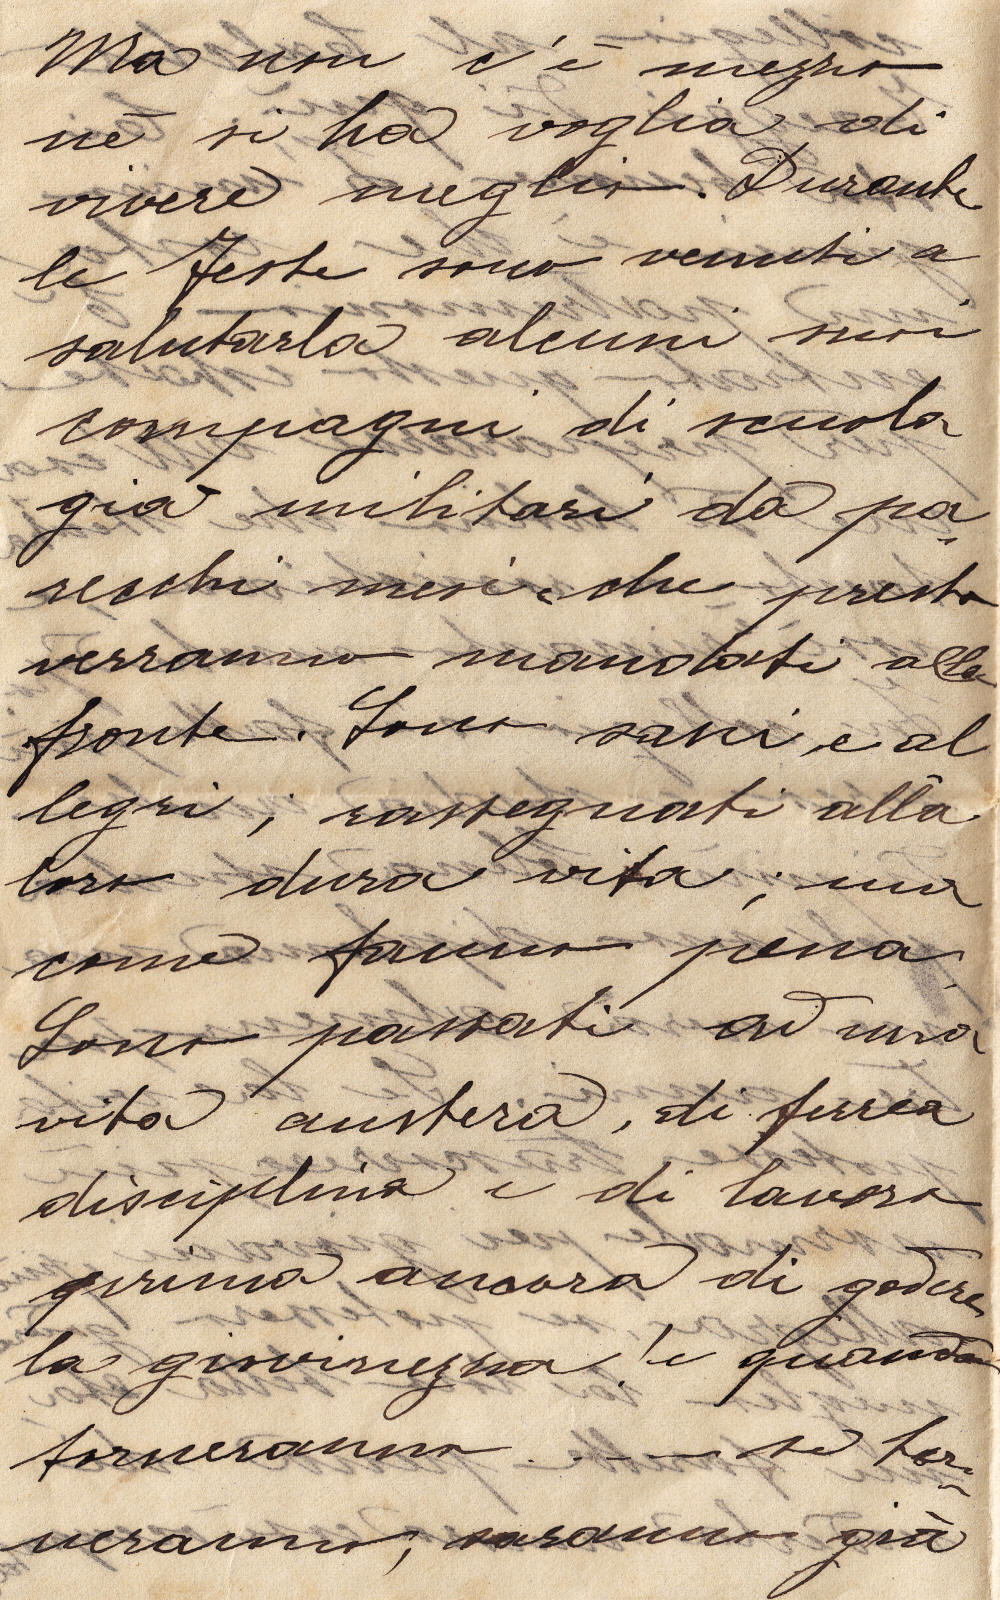 Ma non c'è mezzo
nè si ha voglia di
vivere meglio. Durante
le Feste sono venuti a
salutarla alcuni suoi
compagni di scuola
già militari da pa-
recchi mesi, che presto
verranno mandati alla
fronte. Sono sani, e al
legri; rassegnati alla
loro dura vita; ma
come fanno pena.
Sono passati ad una
vita austera, di ferrea
disciplina e di lavoro
prima ancora di godere
la giovinezza! e quando
torneranno .... se tor-
neranno, saranno già